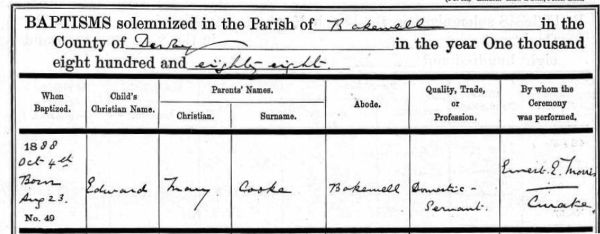 BAPTISMS solemnized in the Parish of Bakewell in the
County of Derby in the year One thousand
eight hundred and eighty eight.
When Baptized.
Child's Christian Name.
Parents' Names.
Christian.
Surname.
Abode.
Quality, Trade, or Profession.
By whom the Ceremony was performed.
1888
Oct 4th
Born
Aug 23.
No. 49
Edward
Mary
Cooke
Bakewell
Domestic-
Servant.
Ernest E. Morris
Curate.